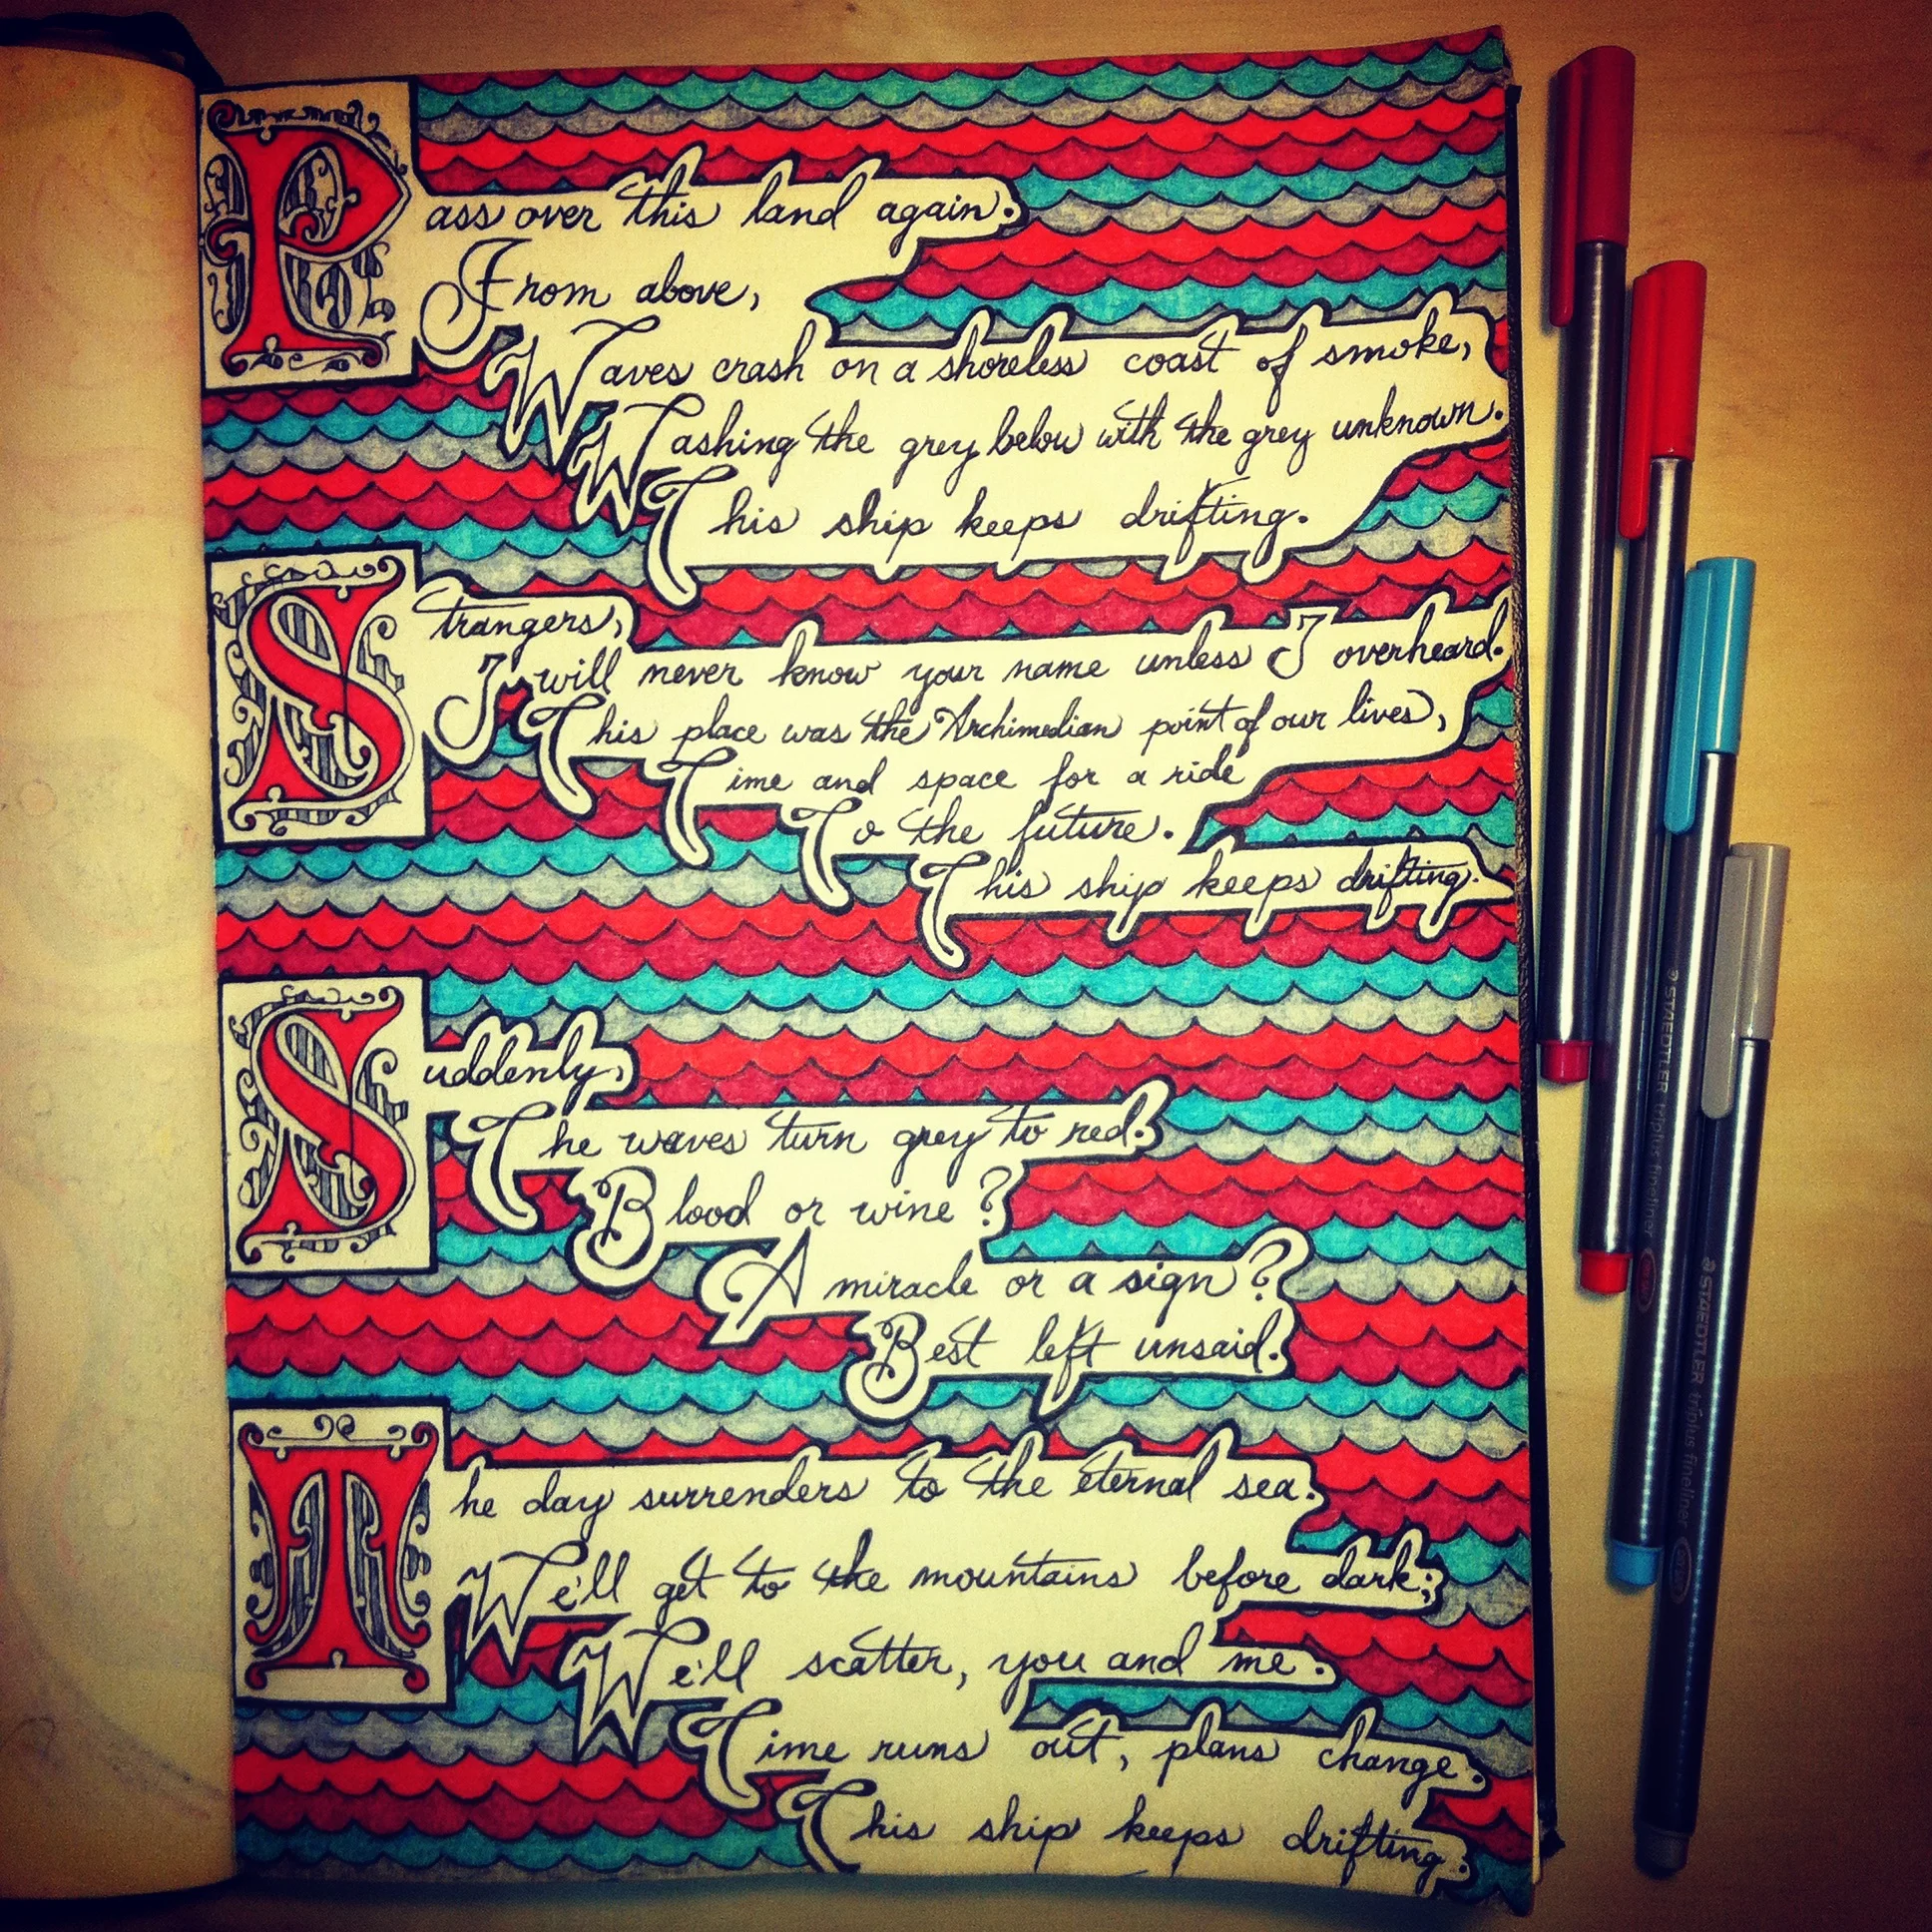 Pass over this land again.
From above,
Waves crash on a shoreless coast of smoke,
Washing the grey below with the grey unknown.
This ship keeps drifting.
Strangers,
I will never know your name unless I overheard.
This place was the Archimedian point of our lives,
Time and space for a ride
To the future.
This ship keeps drifting.
Suddenly,
The waves turn grey to red.
Blood or wine?
A miracle or a sign?
Best left unsaid.
The day surrenders to the eternal sea.
We'll get to the mountains before dark;
We'll scatter, you and me.
Time runs out, plans change.
This ship keeps drifting.
STAEDTLER triplus fineliner
STAEDTLER triplus fineliner